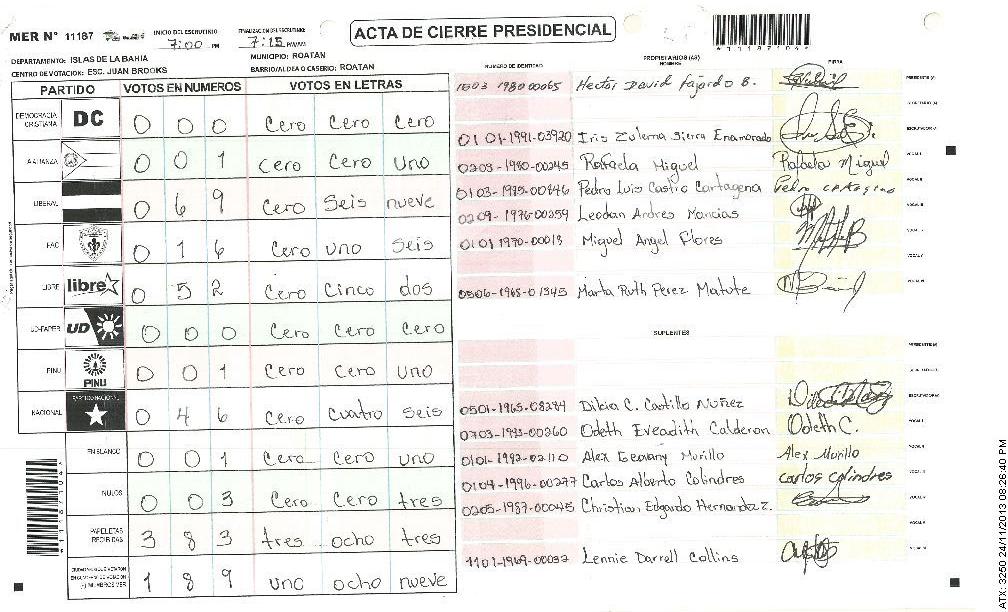 ACTA DE CIERRE PRESIDENCIAL
MER Nº 11187
INICIO DEL ESCRUTINIO 7:00 PM
FINALIZACION DEL ESCRUTINIO: 7:15 PM/AM
DEPARTAMENTO: ISLAS DE LA BAHIA
MUNICIPIO: ROATAN
CENTRO DE VOTACION: ESC. JUAN BROOKS
BARRIO/ALDEA O CASERIO: ROATAN
PARTIDO VOTOS EN NUMEROS VOTOS EN LETRAS
DEMOCRACIA CRISTIANA DC 0 0 0 Cero Cero Cero
ALIANZA 0 0 1 Cero Cero Uno
LIBERAL 0 6 9 Cero Seis nueve
PAC 0 1 6 Cero uno Seis
LIBRE libre 0 5 2 Cero Cinco dos
UD-FAPER UD 0 0 0 Cero Cero Cero
PINU PINU 0 0 1 Cero Cero Uno
NACIONAL PARTIDO NACIONAL 0 4 6 Cero Cuatro Seis
EN BLANCO 0 0 1 Cero Cero uno
NULOS 0 0 3 Cero Cero tres
PAPELETAS RECIBIDAS 3 8 3 tres ocho tres
1 8 9 uno ocho nueve
NUMERO DE IDENTIDAD PROPIETARIOS (AS) NOMBRES FIRMA
1503 1980 00065 Hector David Fajardo B. PRESIDENTE (A)
SECRETARIO (A)
0101-1991-03920 Iris Zulema Sierra Enamorado ESCRUTADOR (A)
0203-1980-00245 Rafaela Miguel Rafaela Miguel VOCAL I
0103-1975-00846 Pedro Luis Castro Cartagena VOCAL II
0209-1976-00259 Leodan Andres Mancias VOCAL III
0101 1970-00013 Miguel Angel Flores
VOCAL V
0506-1965-01345 Marta Ruth Perez Matute
SUPLENTES
PRESIDENTE (A)
0501-1965-08284 Dilcia C. Castillo Nuñez ESCRUTADOR (A)
0703-1993-00260 Odeth Eveadith Calderon Odeth C. VOCAL I
0101-1992-02110 Alex Geovany Murillo Alex Murillo VOCAL II
0104-1996-00277 Carlos Alberto Colindres Carlos Colindres
0205-1987-00045 Christian Edgardo Hernandez Z.
VOCAL V
1101-1969-00032 Lennie Darrell Collins
ATX: 3250 24/11/2013 08:26:40 PM